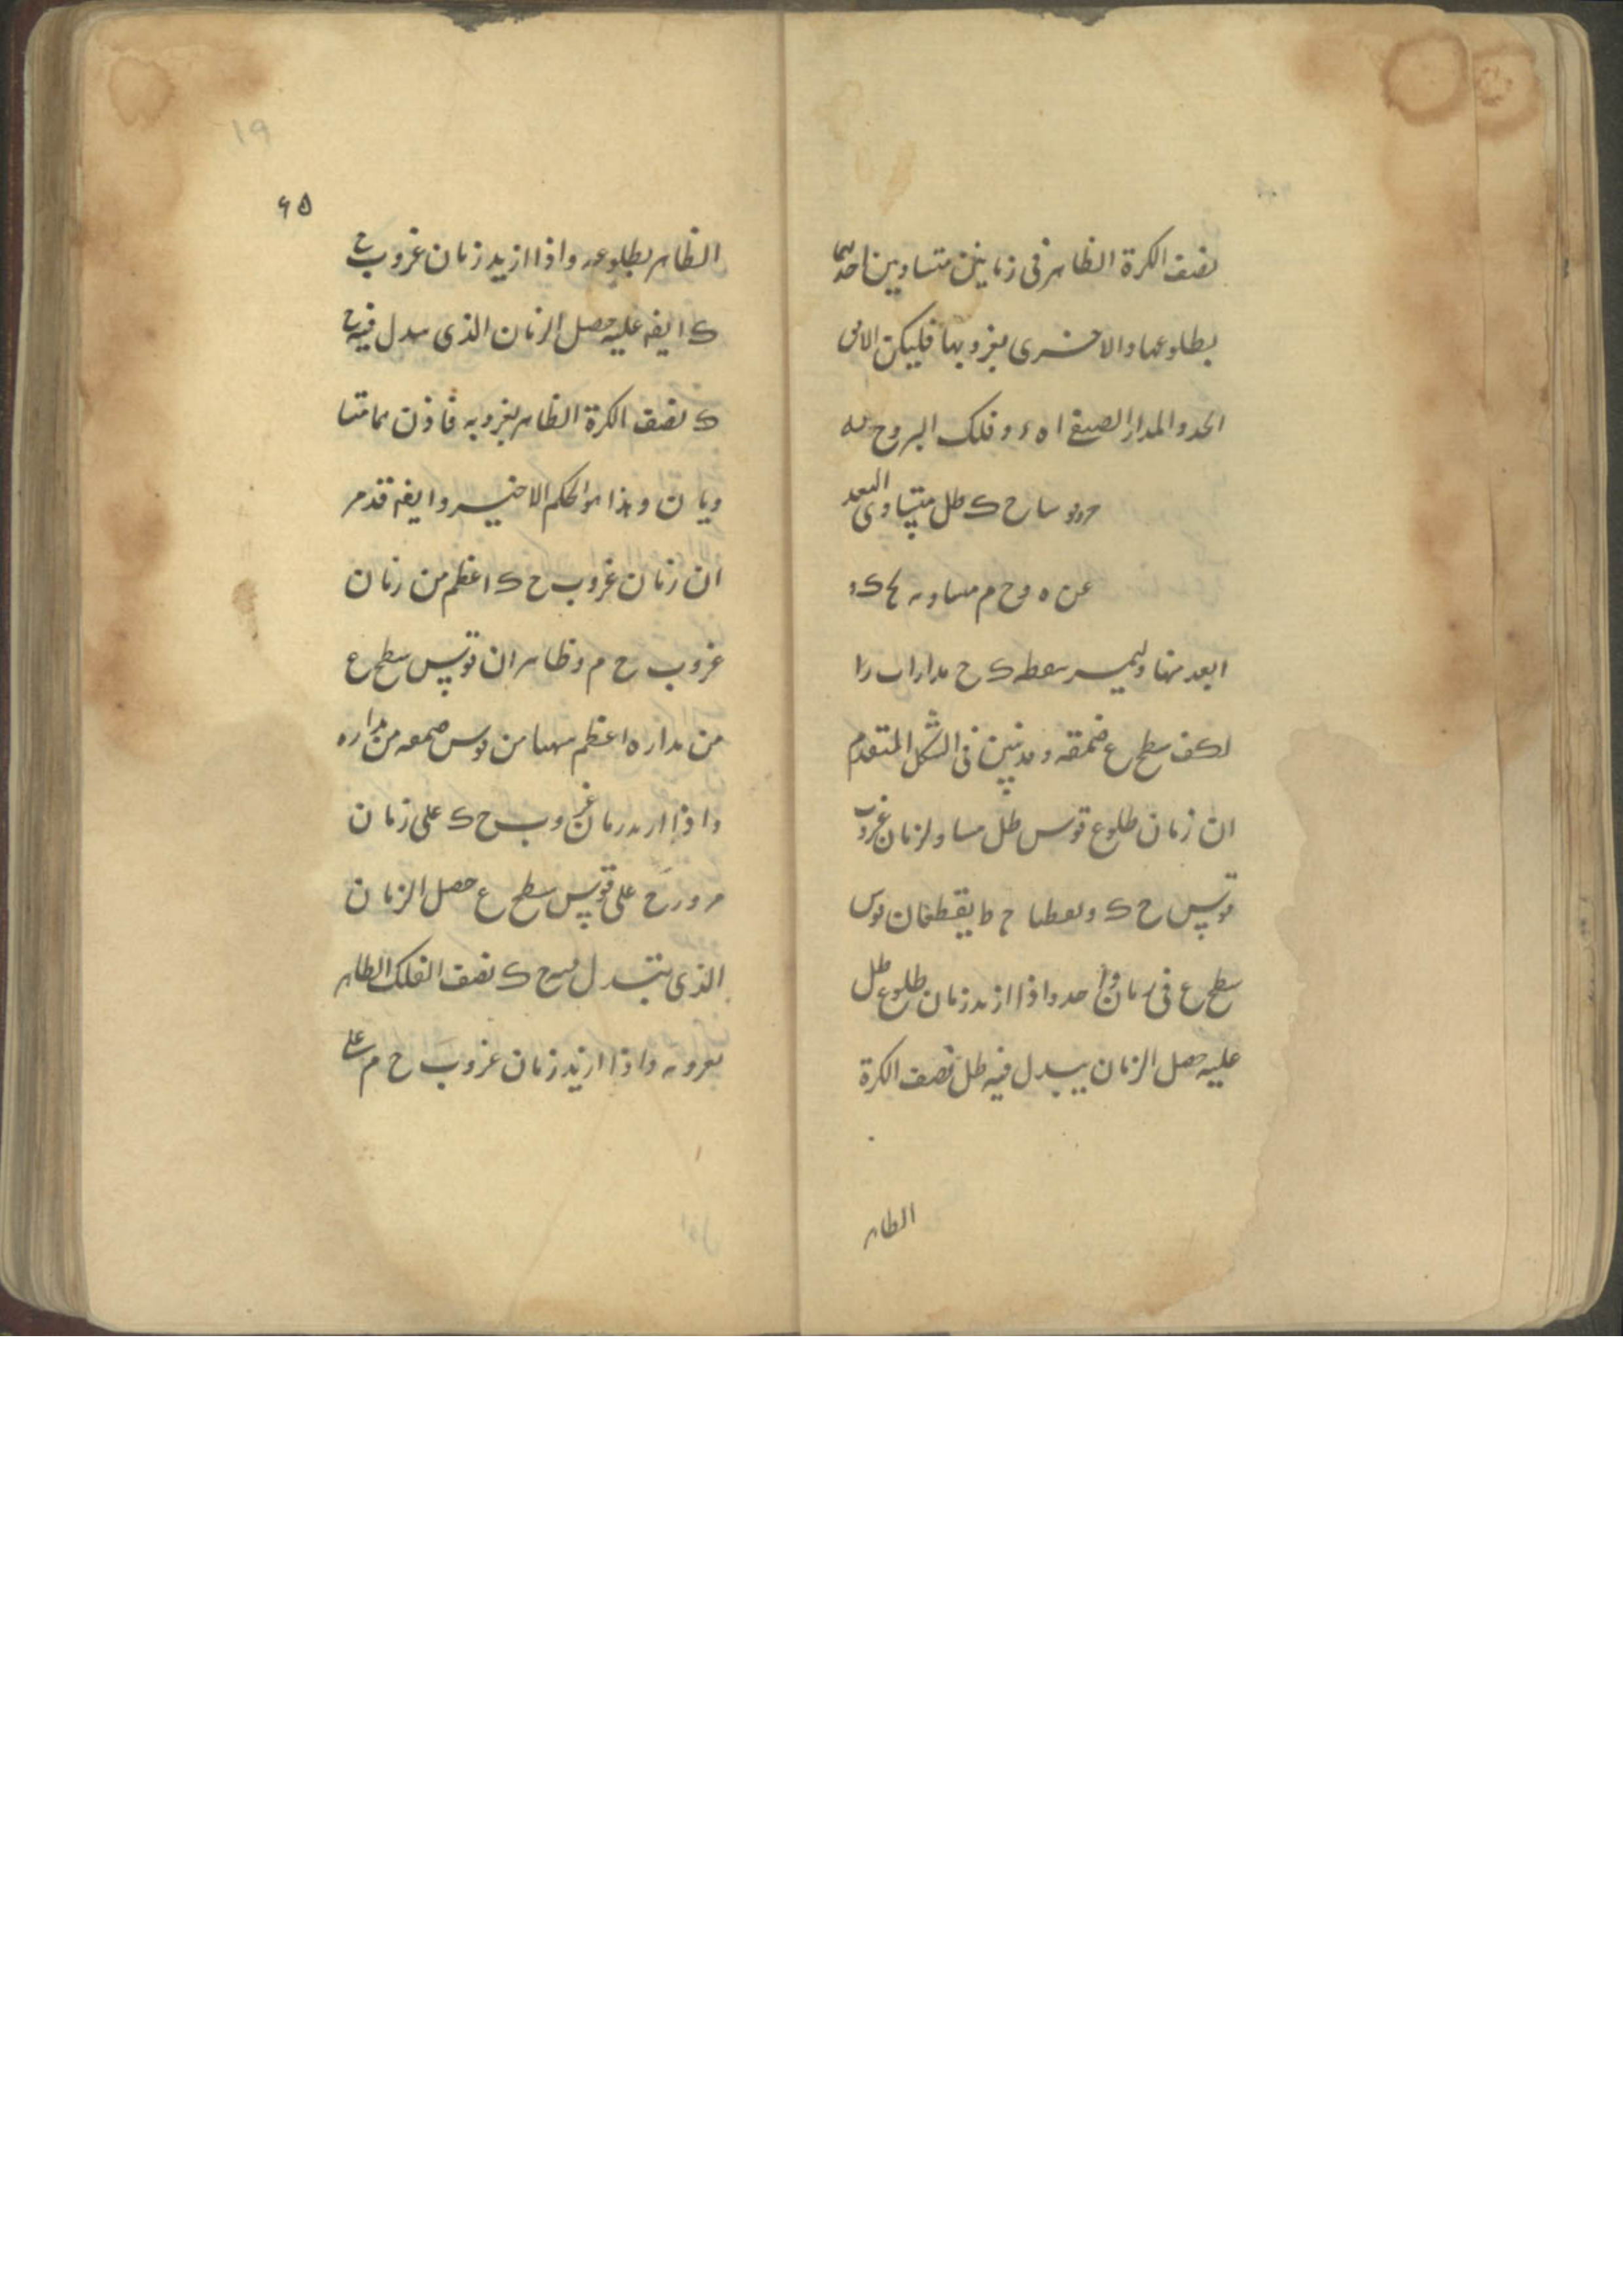 نصف الكرة الظاهر فى زمانين متساويين احدهما
بطلوعها والاخرى بغروبها فليكن الافق
ا ح د والمدار الصيفى ا ه ء وفلك البروج
ح ك ط ل متساوى البعد
عن ه و ح م مساويه
ابعد منها وليمر بنقطه ك ح مداراب
سطح ع وقد تبين فى الشكل المتقدم
ان زمان طلوع قوس ط ل مساو لزمان غروب
قوس ح ك ونقطتا ح ط يقطعان قوس
سطح ع فى زمان واحد واذا ازيد زمان طلوع ط ل
عليه حصل الزمان يبدل فيه ط ل نصف الكرة
الظاهر
١٩
۶۵
الظاهر بطلوعه واذا ازيد زمان غروب ح
ك ايضه عليه حصل الزمان الذى يبدل فيه ح
ك نصف الكرة الظاهر بغروبه فاذن هما متسا
ويان وهذا هو الحكم الاخير وايضه قد مر
ان زمان غروب ح ك اعظم من زمان
غروب ح م وظاهر ان قوس سطح ع
من مداره اعظم من قوس من مداره
واذا ازيد زمان غروب ح ك على زمان
مرور ح على قوس سطح ع حصل الزمان
الذى يتبدل فيه ح ك نصف الفلك الظاهر
بغروبه واذا ازيد زمان غروب ح م على